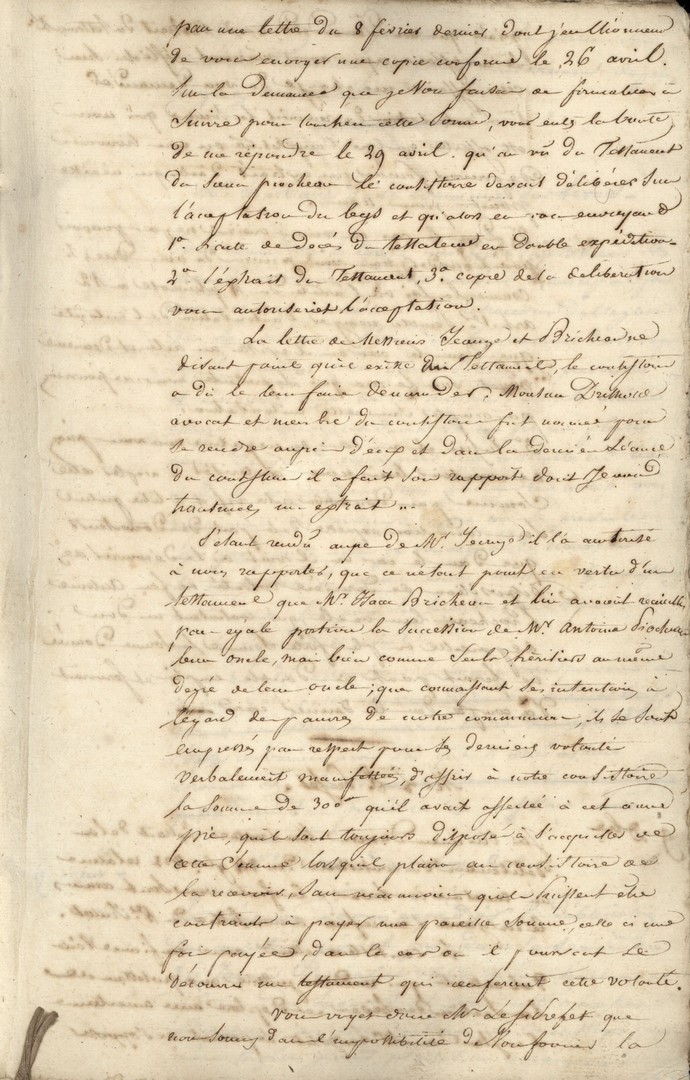 par une lettre du 8 février dernier dont j'eu l'honneur
de vous envoyer une copie conforme le 26 avril.
Sur la demande que je vou faisais de formalités à
suivre pour toucher cette somme, vous eutes la bonté
de me répondre le 29 avril. qu'au vû du Testament
du sieur piocheau le consistoire devait délibérer sur
l'acceptasion du legs et qu'alors en vous envoyand
1º. l'acte de décés du testateur en double expédition
2º l'extrait du Testament, 3º copie de la deliberation
vous autoriseriet l'acceptation.
La lettre de Messieurs Jeauge et Bricheau ne
disant point qu'il existe du Testament, le consistoire
a dû le leur faire demander. Monsieur
avocat et membre du consistoire fut nommé pour
se rendre auprès d'eux et dans la dernière séance
du consistoire il a fait son rapport dont je vous
transmets un extrait ..
S'étant rendu aupré de Mr. Jeauge il l'a autorisé
à nous rapporter, que ce n'étant point en vertu d'un
testament que Mr. Isaac Bricheau et lui avaoit recueilli,
par égale portion la succession de Mr. Antoine Piocheau
leur oncle, mais bien comme seuls héritiers au même
degré de leur oncle; que connaissant ses intentions à
légard des pauvres de notre communion, ils se sont
empressés par respect pour ses dernières volonté
verbalement manifestées, d'offrir à notre consistoire
la somme de 300 qu'il avait affectée à cet œuvre
pie, qu'il sont toujours disposé à s'acquitter de
cette somme lorsqu'il plaira au consistoire de
la recevoir, sans néanmoins qu'ils puissent être
contraints à payer une pareille somme, celle ci une
fois payée, dans le cas ou il pourrait se
découvrir un testament qui renfermat cette volonté.
Vous voyez donc Mr. Le sspréfet que
nous sommes dans l'impossibilité de vous fournir la